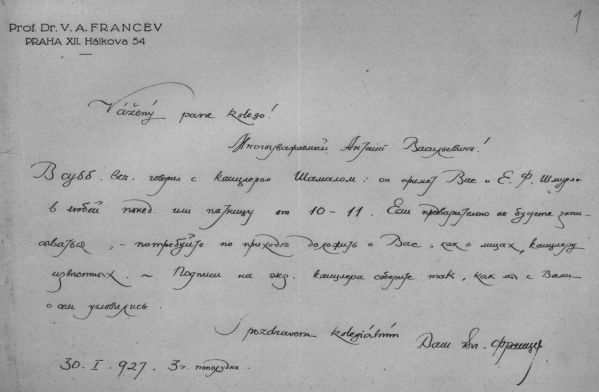 1
Prof. Dr. V. A. FRANCEV
PRAHA XII. Hálkova 54
Vážený pane kolego!
Многоуважаемый Антоній Васильевичъ!
В субб. веч. говорил с канцлером Шамалом: он примет Вас и Е. Ф. Шмурло
в любой понед. или пятницу от 10–11. Если предварительно не будете запи-
сываться, – потребуйте по приходѣ доложить о Вас, как о лицах, канцлеру
извѣстных. – Подписи на экз. канцлера соберите так, как мы с Вами
о сем условились.
S pozdravem kolegiálním
Ваш Вл. Францев
30. I. 927. 3 г. пополудни.